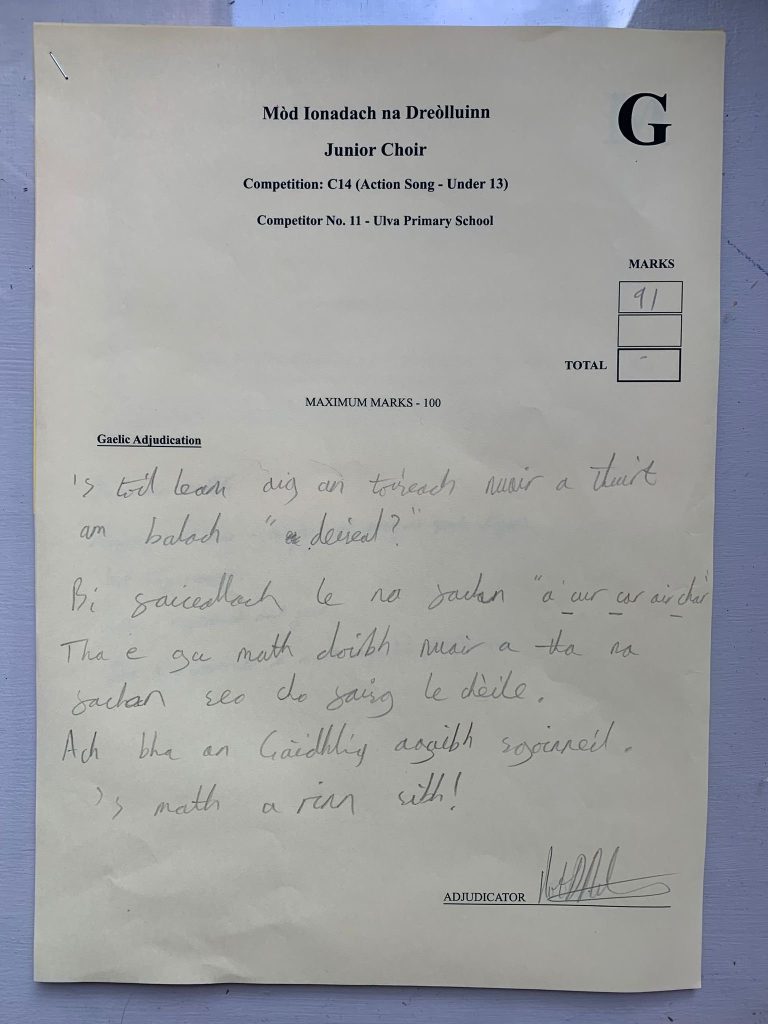 G
Mòd Ionadach na Dreòlluinn
Junior Choir
Competition: C14 (Action Song - Under 13)
Competitor No. 11 - Ulva Primary School
MARKS
91
TOTAL
-
MAXIMUM MARKS - 100
Gaelic Adjudication
's toil leam aig an toiseach nuair a thuirt
am balach " deiseal?"
Bi faiceallach le na faclan "a' cur car air char
Tha e gu math doirbh nuair a tha na
faclan seo cho faisg le chèile.
Ach bha an Gàidhlig aagaibh sgoinneil.
's math a rinn sibh!
ADJUDICATOR